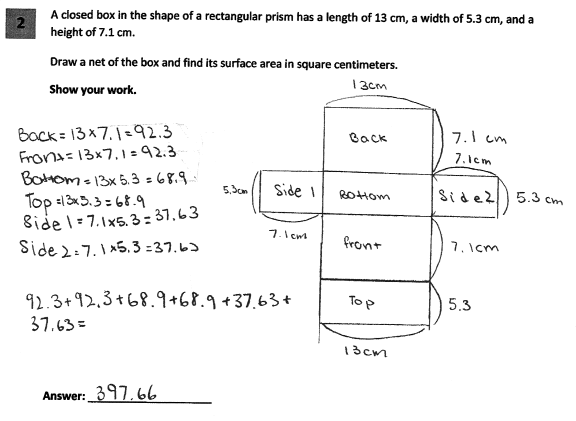 2
A closed box in the shape of a rectangular prism has a length of 13 cm, a width of 5.3 cm, and a
height of 7.1 cm.
Draw a net of the box and find its surface area in square centimeters.
Show your work.
13cm
Back = 13 x 7.1 = 92.3
Front = 13x7.1 = 92.3
Bottom = 13x5.3 = 68.9
Top = 13x5.3 = 68.9
Side 1 = 7.1x5.3 = 37.63
Side 2 = 7.1 x5.3 = 37.63
Back
7.1 cm
7.1cm
5.3cm
Side 1
Bottom
Side 2
5.3 cm
7.1cm
front
7.1cm
Top
5.3
13cm
92.3+92.3+68.9+68.9+37.63+
37.63=
Answer: 397.66